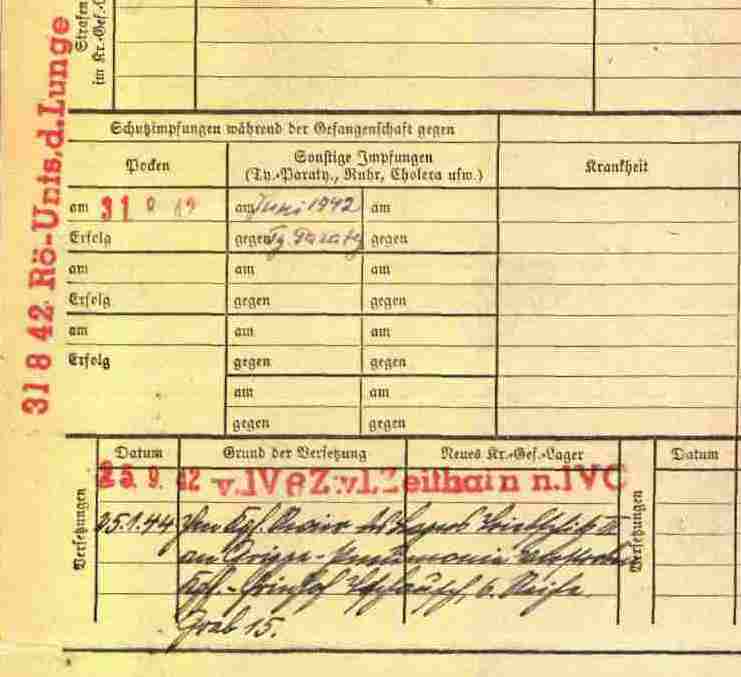 Strafen
im Kr.-Gef.-L
31 8 42 Rö-Unis.d.Lunge
Schutzimpfungen während der Gefangenschaft gegen
Pocken
Sonstige Impfungen
(Ty.-Paraty., Ruhr, Cholera usw.)
Krankheit
am 31 8 42 am Juni 1942 am
Erfolg gegen Ty. Paraty gegen
am am am
Erfolg gegen gegen
am am am
Erfolg gegen gegen
am am
gegen gegen
Versetzungen
Datum Grund der Versetzung Neues Kr.-Gef.-Lager
Versetzungen
Datum
25. 9. 42 v. IV B Z.v.l. Zeithain n. IVC
25.1.44 Im Kgf. des Lagers
an Grippe-Pneumonie verstorben
Kgf.-Friedhof 6. Reihe
Grab 15.